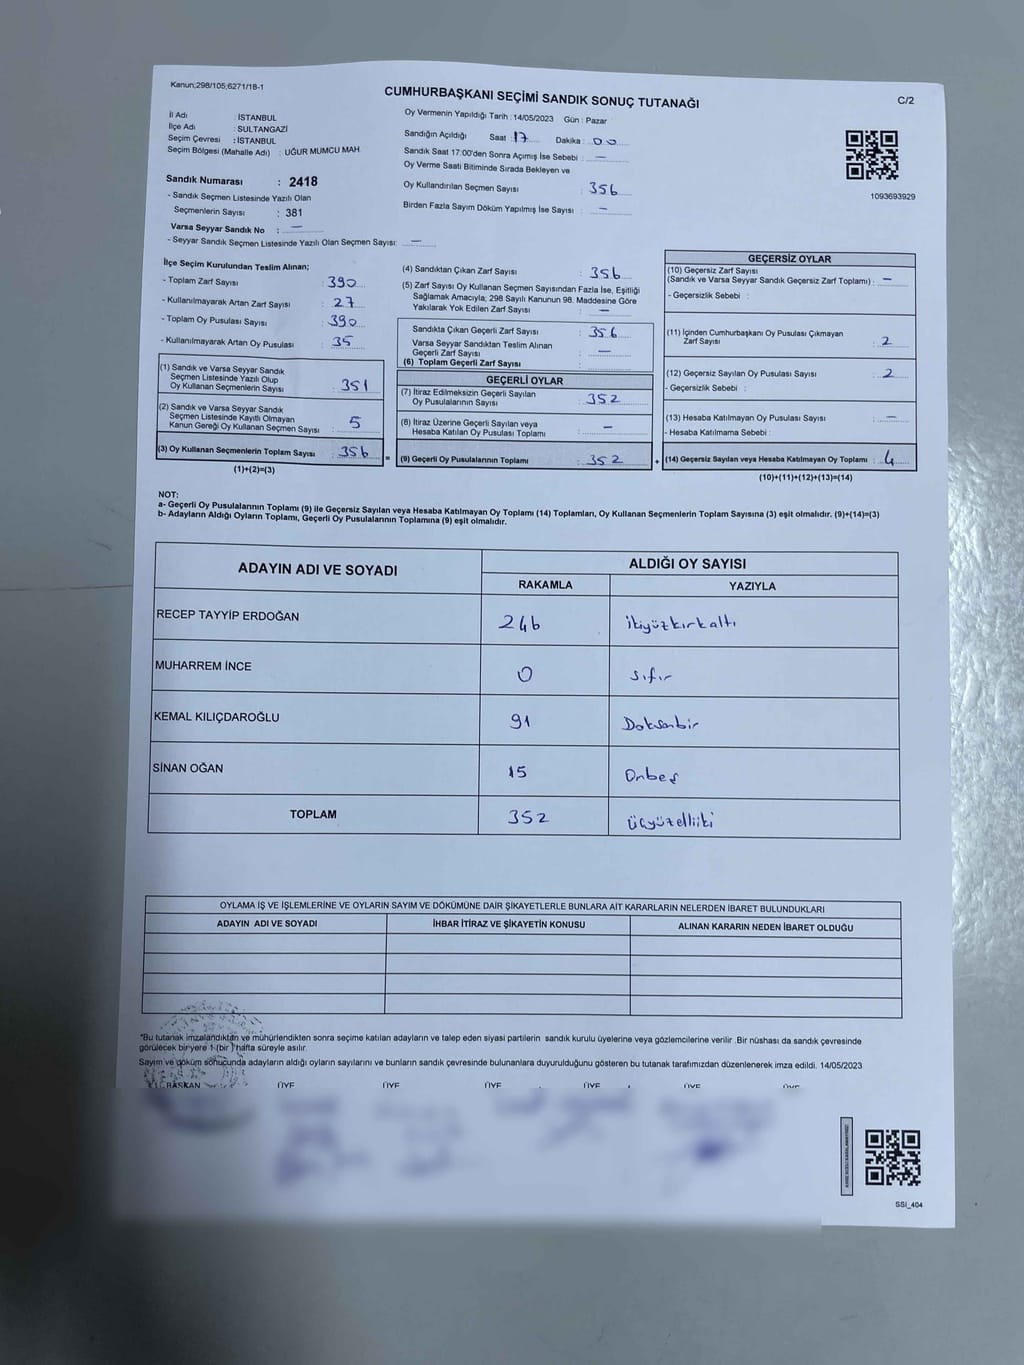 Kanun;298/105;6271/18-1
CUMHURBAŞKANI SEÇİMİ SANDIK SONUÇ TUTANAĞI
C/2
İl Adı : İSTANBUL
İlçe Adı : SULTANGAZİ
Seçim Çevresi : İSTANBUL
Seçim Bölgesi (Mahalle Adı) : UĞUR MUMCU MAH.
Sandık Numarası : 2418
- Sandık Seçmen Listesinde Yazılı Olan
Seçmenlerin Sayısı : 381
Varsa Seyyar Sandık No : —
- Seyyar Sandık Seçmen Listesinde Yazılı Olan Seçmen Sayısı: —
Oy Vermenin Yapıldığı Tarih : 14/05/2023 Gün : Pazar
Sandığın Açıldığı Saat : 17 Dakika : 00
Sandık Saat 17:00'den Sonra Açımış İse Sebebi : —
Oy Verme Saati Bitiminde Sırada Bekleyen ve
Oy Kullandırılan Seçmen Sayısı : 356
Birden Fazla Sayım Döküm Yapılmış İse Sayısı : —
1093693929
İlçe Seçim Kurulundan Teslim Alınan;
- Toplam Zarf Sayısı : 390
- Kullanılmayarak Artan Zarf Sayısı : 27
- Toplam Oy Pusulası Sayısı : 390
- Kullanılmayarak Artan Oy Pusulası : 35
(1) Sandık ve Varsa Seyyar Sandık
Seçmen Listesinde Yazılı Olup
Oy Kullanan Seçmenlerin Sayısı : 351
(2) Sandık ve Varsa Seyyar Sandık
Seçmen Listesinde Kayıtlı Olmayan
Kanun Gereği Oy Kullanan Seçmen Sayısı : 5
(3) Oy Kullanan Seçmenlerin Toplam Sayısı : 356
(1)+(2)=(3)
(4) Sandıktan Çıkan Zarf Sayısı : 356
(5) Zarf Sayısı Oy Kullanan Seçmen Sayısından Fazla İse, Eşitliği
Sağlamak Amacıyla; 298 Sayılı Kanunun 98. Maddesine Göre
Yakılarak Yok Edilen Zarf Sayısı : —
Sandıkta Çıkan Geçerli Zarf Sayısı : 356
Varsa Seyyar Sandıktan Teslim Alınan
Geçerli Zarf Sayısı : —
(6) Toplam Geçerli Zarf Sayısı :
GEÇERLİ OYLAR
(7) İtiraz Edilmeksizin Geçerli Sayılan
Oy Pusulalarının Sayısı : 352
(8) İtiraz Üzerine Geçerli Sayılan veya
Hesaba Katılan Oy Pusulası Toplamı : —
= (9) Geçerli Oy Pusulalarının Toplamı : 352 +
GEÇERSİZ OYLAR
(10) Geçersiz Zarf Sayısı
(Sandık ve Varsa Seyyar Sandık Geçersiz Zarf Toplamı) : —
- Geçersizlik Sebebi :
(11) İçinden Cumhurbaşkanı Oy Pusulası Çıkmayan
Zarf Sayısı : 2
(12) Geçersiz Sayılan Oy Pusulası Sayısı : 2
- Geçersizlik Sebebi :
(13) Hesaba Katılmayan Oy Pusulası Sayısı : —
- Hesaba Katılmama Sebebi :
(14) Geçersiz Sayılan veya Hesaba Katılmayan Oy Toplamı : 4
(10)+(11)+(12)+(13)=(14)
NOT:
a- Geçerli Oy Pusulalarının Toplamı (9) ile Geçersiz Sayılan veya Hesaba Katılmayan Oy Toplamı (14) Toplamları, Oy Kullanan Seçmenlerin Toplam Sayısına (3) eşit olmalıdır. (9)+(14)=(3)
b- Adayların Aldığı Oyların Toplamı, Geçerli Oy Pusulalarının Toplamına (9) eşit olmalıdır.
ADAYIN ADI VE SOYADI
ALDIĞI OY SAYISI
RAKAMLA YAZIYLA
RECEP TAYYİP ERDOĞAN 246 ikiyüzkırkaltı
MUHARREM İNCE 0 sıfır
KEMAL KILIÇDAROĞLU 91 Doksanbir
SİNAN OĞAN 15 Onbeş
TOPLAM 352 üçyüzelliiki
OYLAMA İŞ VE İŞLEMLERİNE VE OYLARIN SAYIM VE DÖKÜMÜNE DAİR ŞİKAYETLERLE BUNLARA AİT KARARLARIN NELERDEN İBARET BULUNDUKLARI
ADAYIN ADI VE SOYADI İHBAR İTİRAZ VE ŞİKAYETİN KONUSU ALINAN KARARIN NEDEN İBARET OLDUĞU
*Bu tutanak imzalandıktan ve mühürlendikten sonra seçime katılan adayların ve talep eden siyasi partilerin sandık kurulu üyelerine veya gözlemcilerine verilir .Bir nüshası da sandık çevresinde
görülecek bir yere 1 (bir ) hafta süreyle asılır.
Sayım ve döküm sonucunda adayların aldığı oyların sayılarını ve bunların sandık çevresinde bulunanlara duyurulduğunu gösteren bu tutanak tarafımızdan düzenlenerek imza edildi. 14/05/2023
BAŞKAN ÜYE ÜYE ÜYE ÜYE ÜYE ÜYE
SSİ_404